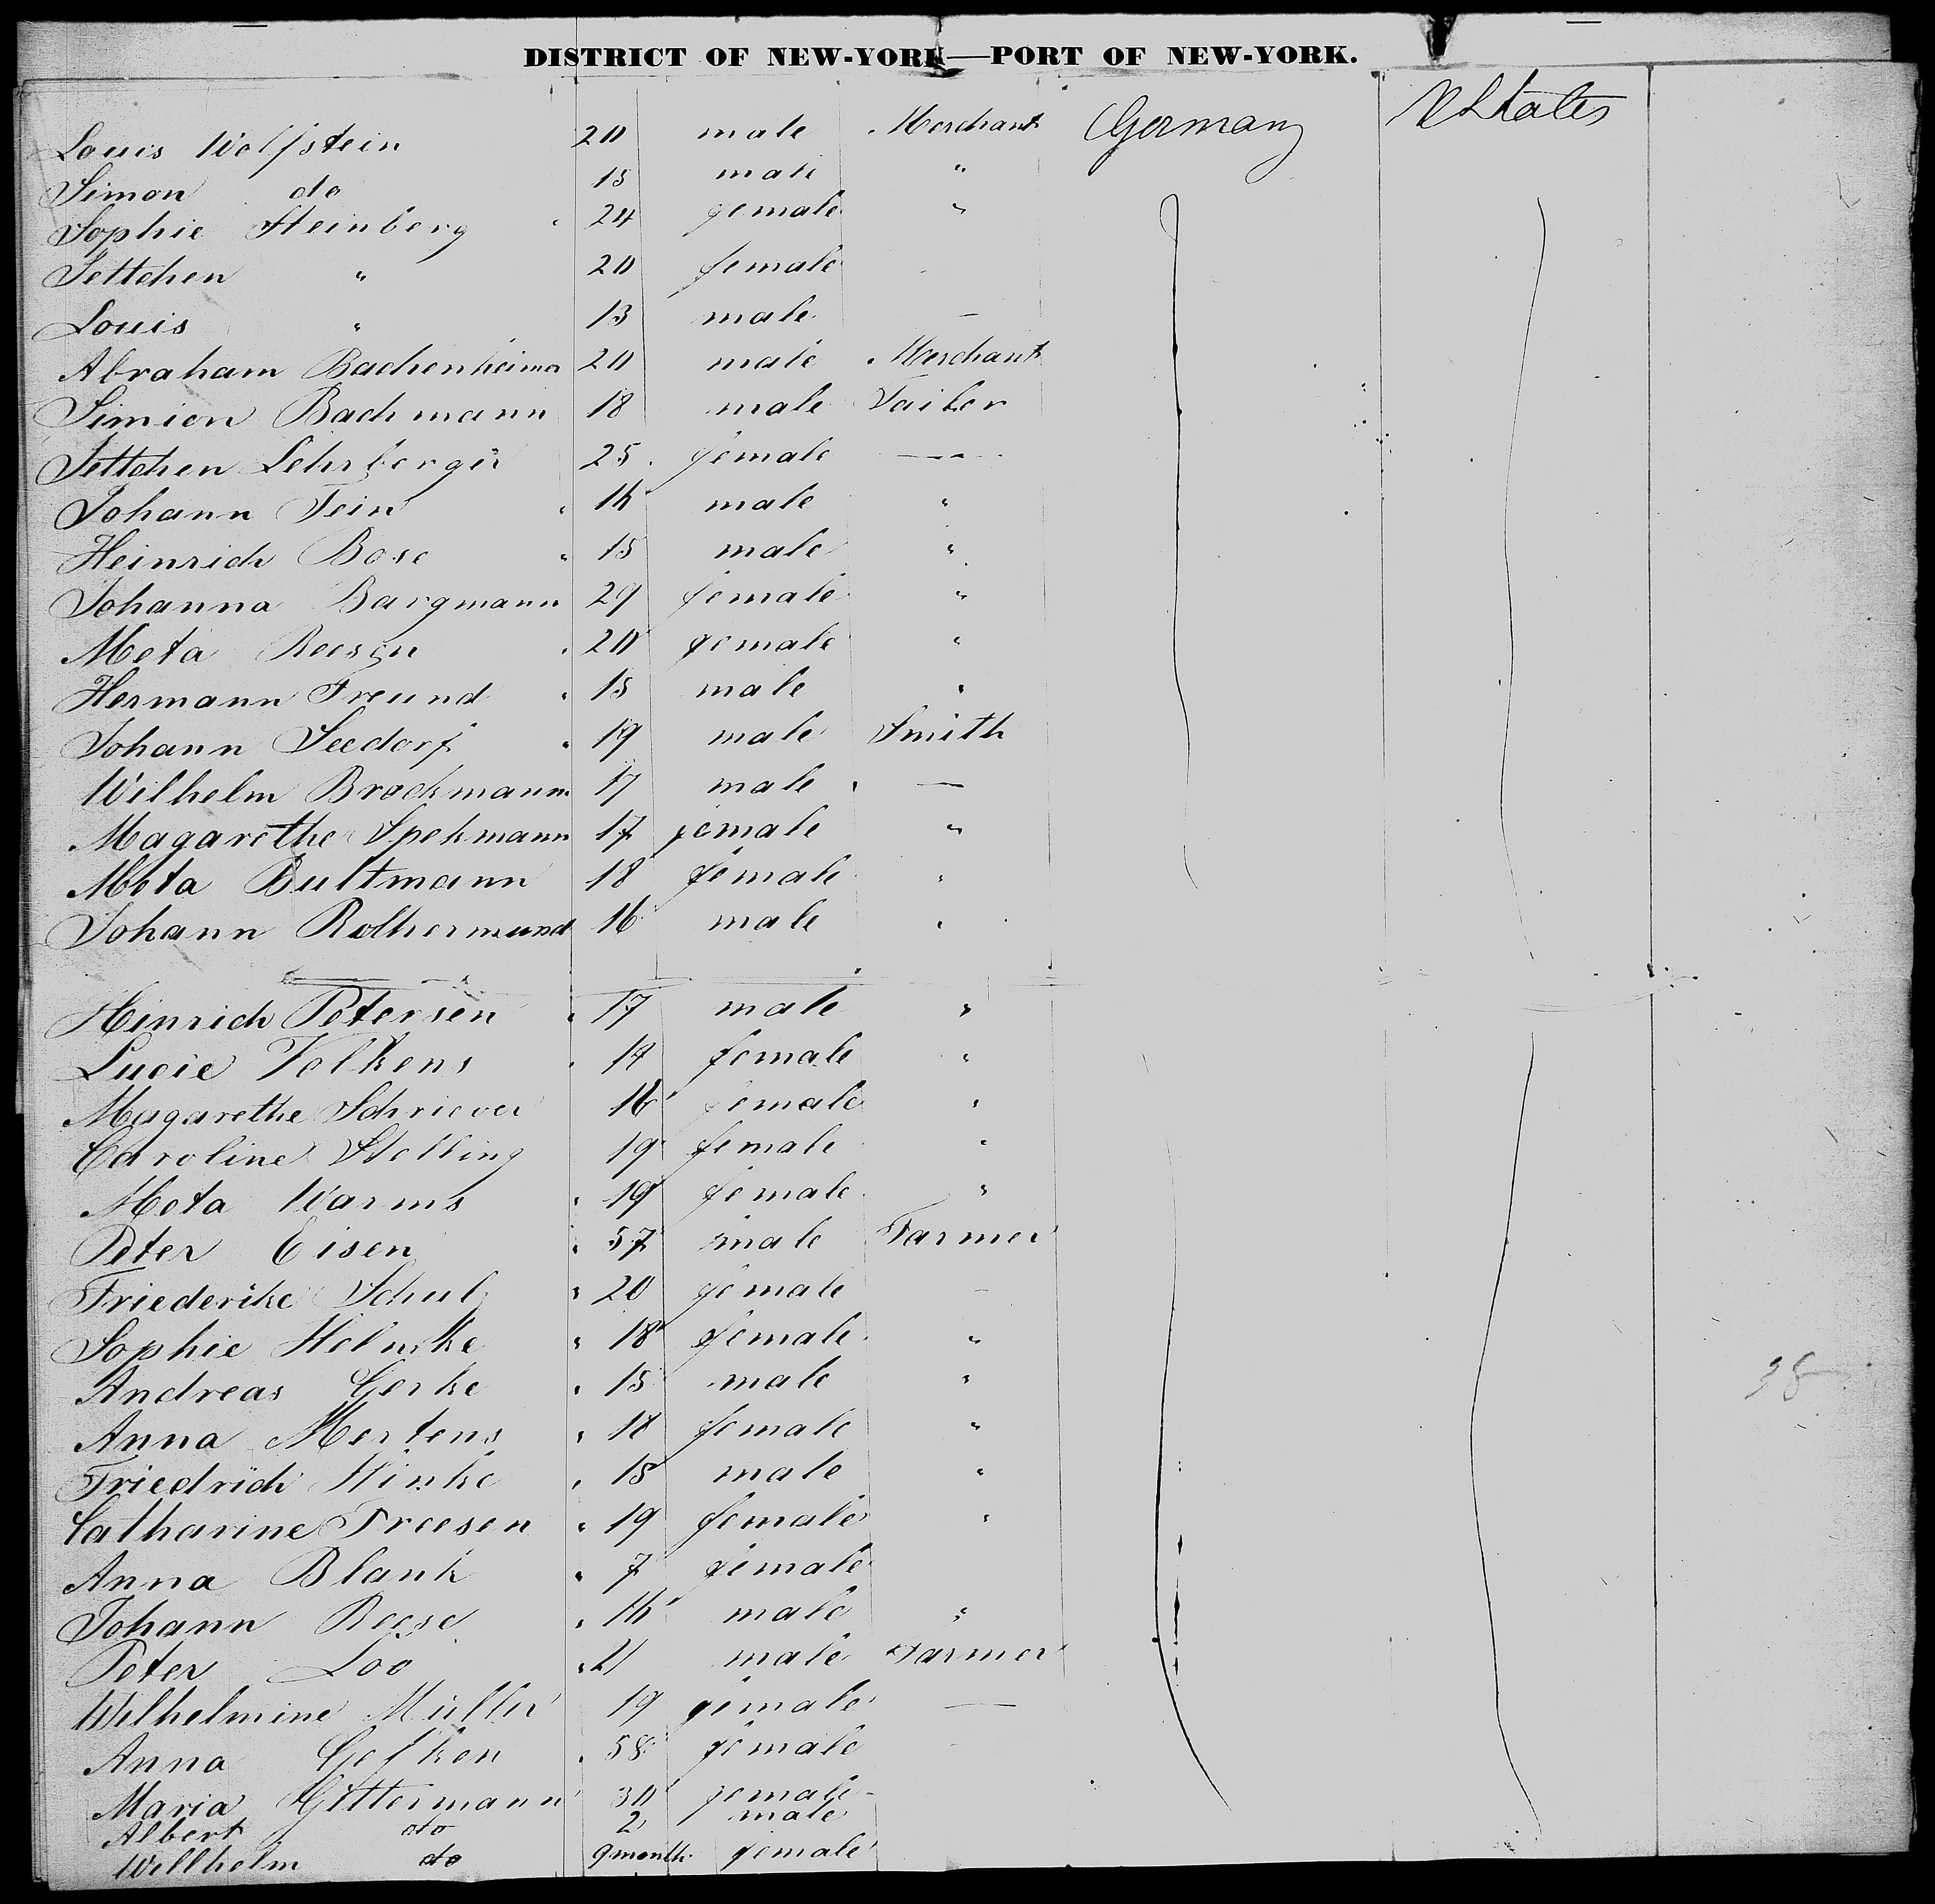 DISTRICT OF NEW-YORK—PORT OF NEW-YORK.
Louis Wolfstein 20 male Merchant Germany U States
Simon do 15 male "
Sophie Steinberg 24 female "
Jettchen " 20 female
Louis " 13 male —
Abraham Bachenheimer 20 male Merchant
Simion Bachmann 18 male Tailor
Jettchen Lehrberger 25 female —
Johann Fein 16 male "
Heinrich Bose " 15 male "
Johanna Bargmann 29 female "
Meta Reesen 20 female "
Hermann Freund 15 male "
Johann Seedorf " 19 male Smith
Wilhelm Brockmann 17 male —
Magarethe Spekmann 17 female "
Meta Bultmann 18 female "
Johann Rothermund 16 male "
Hinrich Petersen " 17 male "
Lucie Volkens female "
Magarethe Schriever 16 female "
Caroline Stelling 19 female "
Meta Warms " 19 female "
Peter Eisen " 57 male Farmer
Friederike Schul " 20 female —
Sophie Holmke " 18 female "
Andreas Gerke " 15 male "
Anna Mertens " 18 female "
Friedrich Hinke " 15 male "
Catharine Freesen " 19 female "
Anna Blank " 7 female
Johann Reese " 16 male "
Peter Loo " 21 male Farmer
Wilhelmine Müller 19 female —
Anna Gefken " 58 female
Maria Gittermann 30 female
Albert do 2 male
Willhelm do 9 month female
38